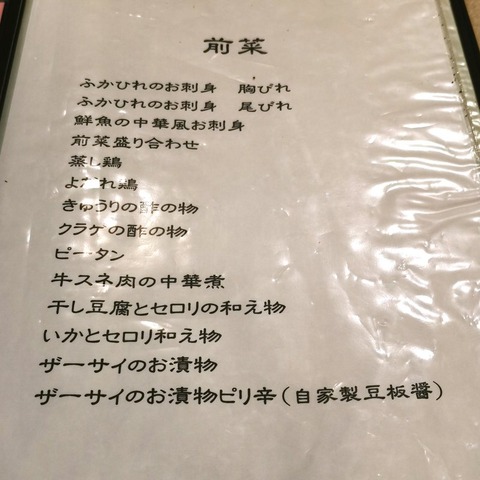 前菜
ふかひれのお刺身 胸びれ
ふかひれのお刺身 尾びれ
鮮魚の中華風お刺身
前菜盛り合わせ
蒸し鶏
よだれ鶏
きゅうりの酢の物
クラゲの酢の物
ピータン
牛スネ肉の中華煮
干し豆腐とセロリの和え物
いかとセロリ和え物
ザーサイのお漬物
ザーサイのお漬物ピリ辛(自家製豆板醤)